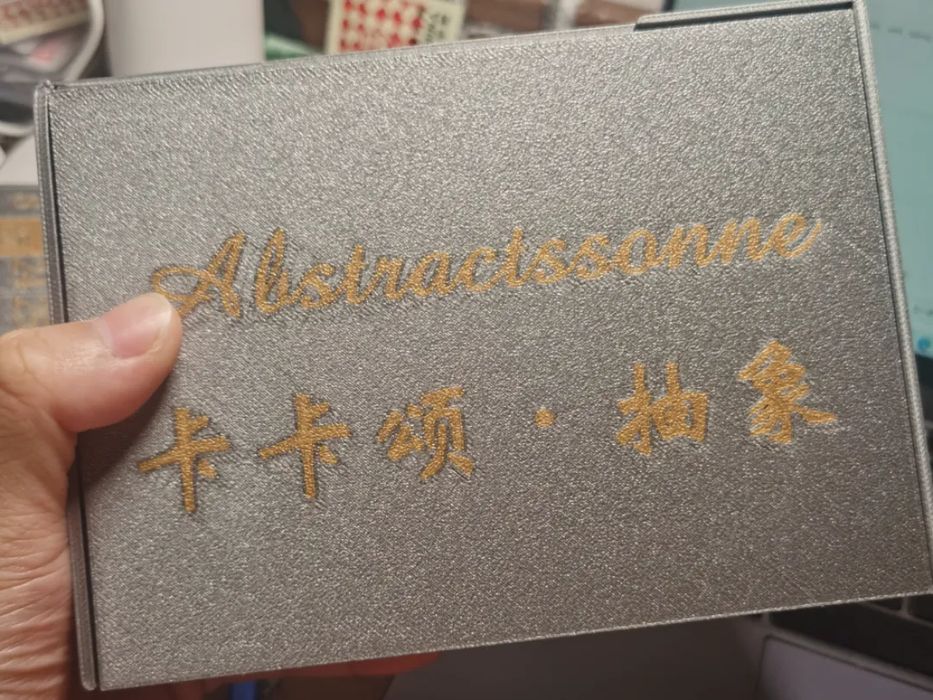 Abstractssonne
卡卡颂·抽象